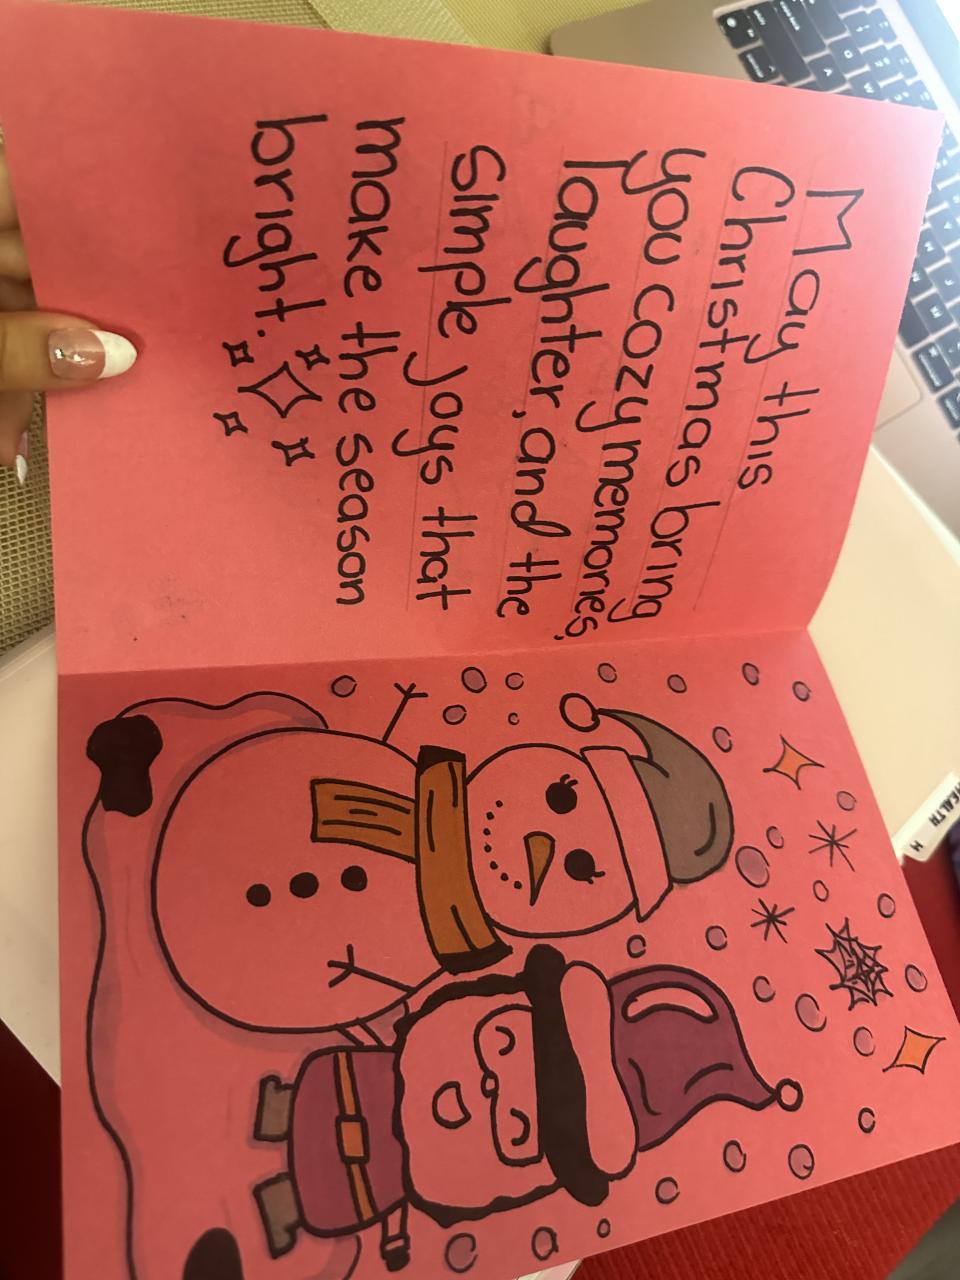 May this
Christmas bring
you cozy memories,
laughter, and the
simple joys that
make the season
bright.
HEALTH
H